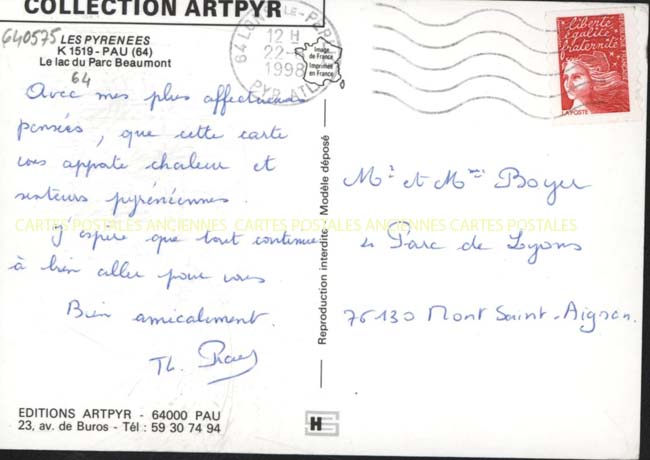 COLLECTION ARTPYR
640575
LES PYRENEES
K 1519 - PAU (64)
Le lac du Parc Beaumont
64
Avec mes plus affectueuses
pensées, que cette carte
vous apporte chaleur et
senteurs pyrénéennes.
J'espère que tout continue
à bien aller pour vous
Bien amicalement.
Th.
EDITIONS ARTPYR - 64000 PAU
23, av. de Buros - Tél : 59 30 74 94
Reproduction interdite - Modèle déposé
12 H
22-
1998
64
PYR. ATL
Image
de France
Imprimée
en France
Liberté
égalité
fraternité
LA POSTE
Mr et Mme Boyer
Parc de Lyons
76130 Mont Saint-Aignan.
CARTES POSTALES ANCIENNES CARTES POSTALES ANCIENNES CARTES POSTALES
H